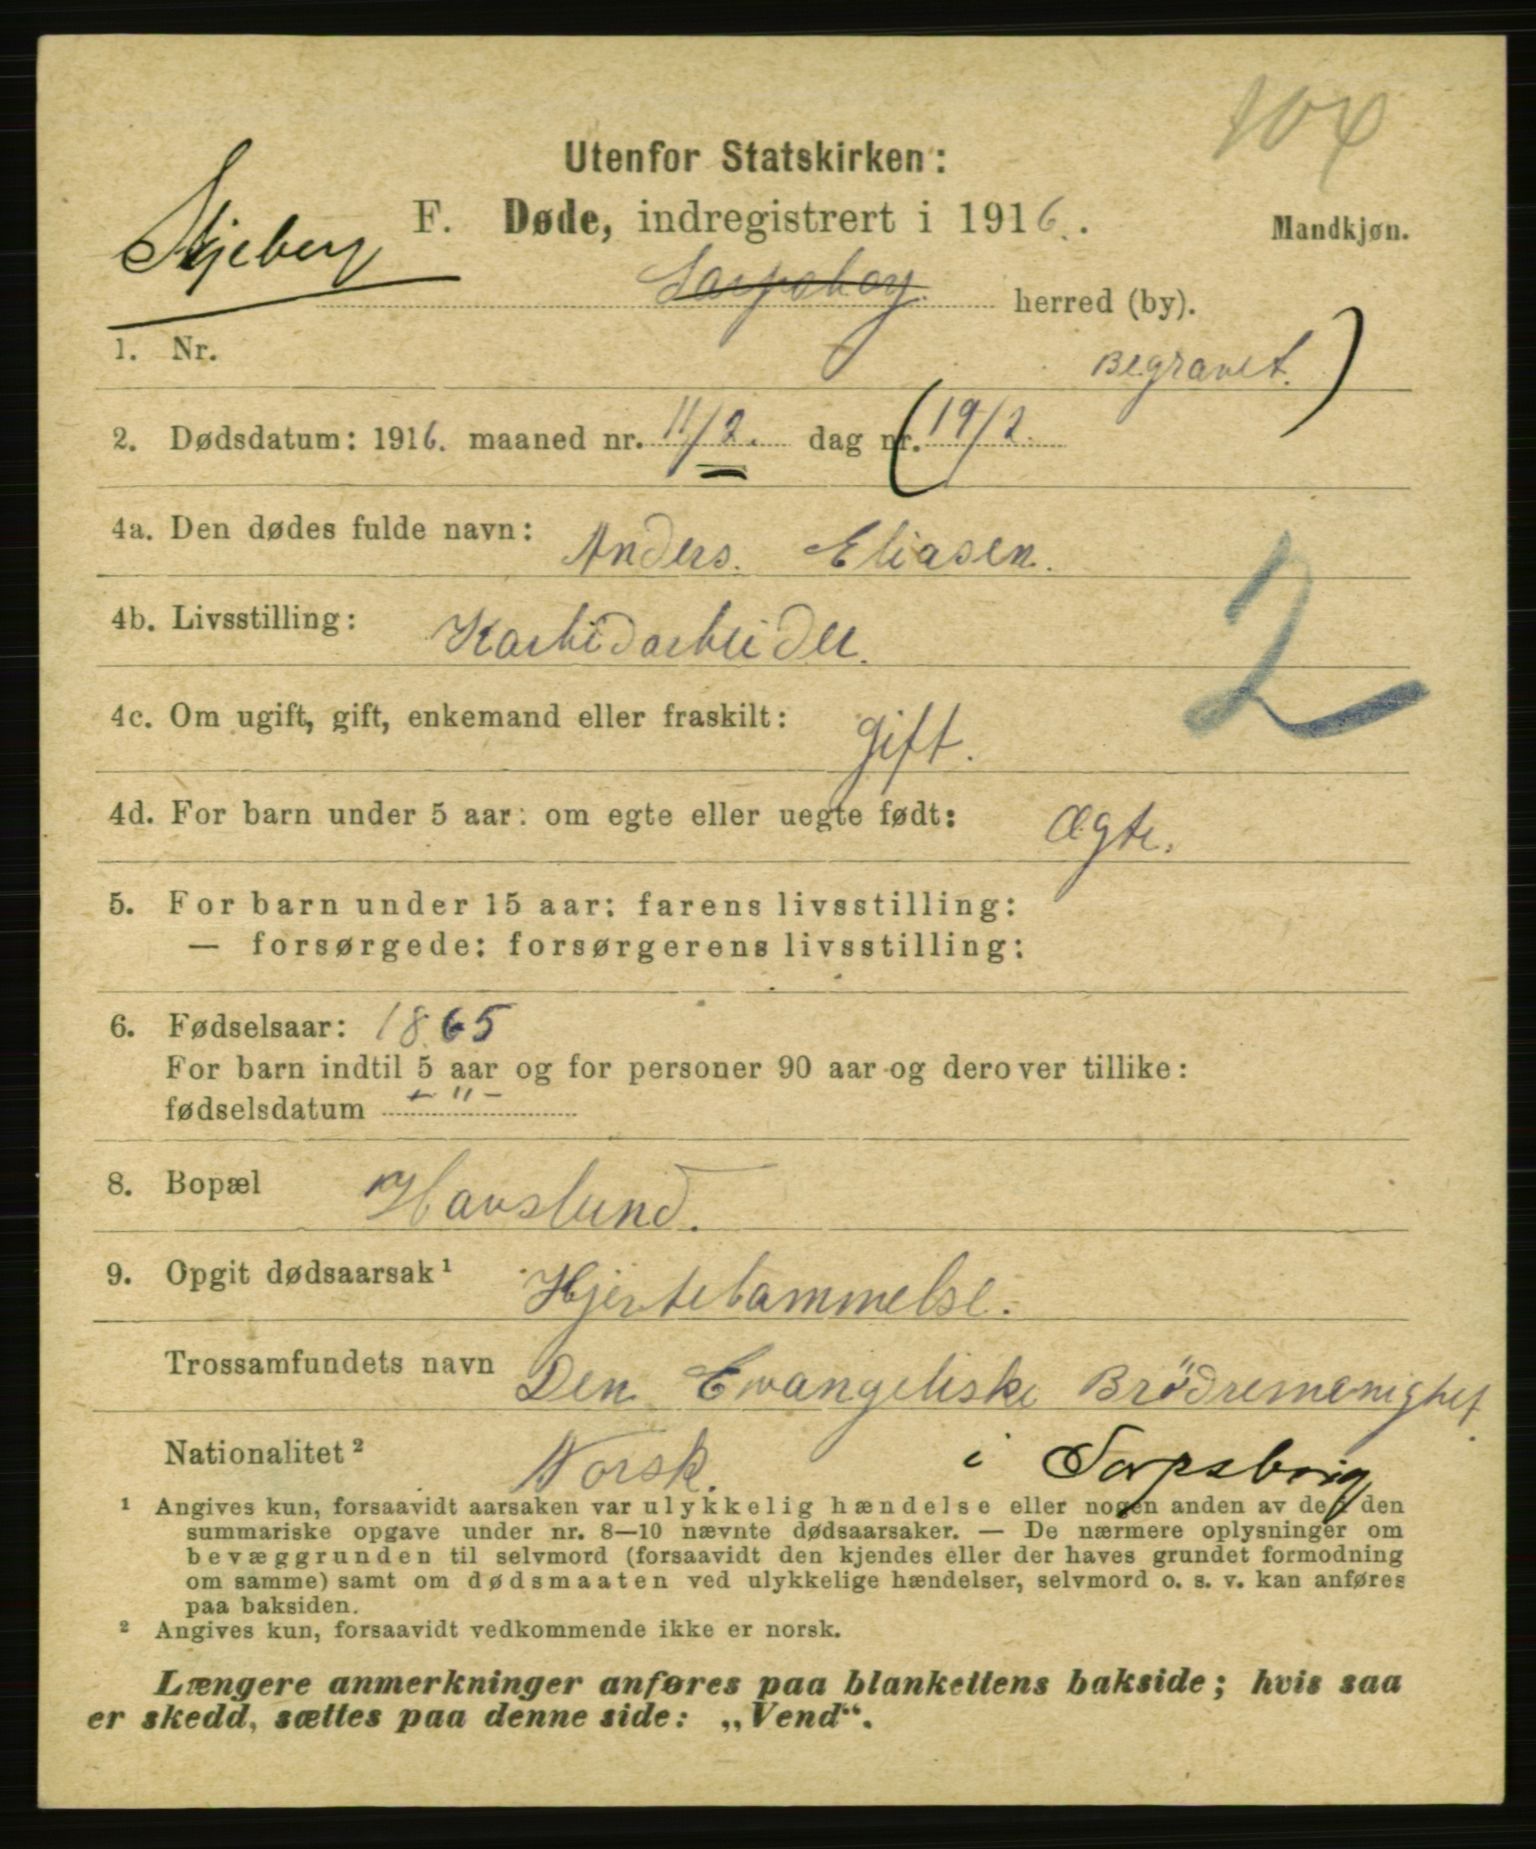 104
Utenfor Statskirken:
Skjeberg
F. Døde, indregistrert i 1916.
Mandkjøn.
Sarpsborg. herred (by).
1. Nr.
Begravet.)
2. Dødsdatum: 1916. maaned nr. 11/2. dag nr. (19/2.
4a. Den dødes fulde navn: Anders. Eliasen.
4b. Livsstilling: Karbidarbeider.
2
4c. Om ugift, gift, enkemand eller fraskilt: gift.
4d. For barn under 5 aar: om egte eller uegte født: Ægte.
5. For barn under 15 aar: farens livsstilling:
— forsørgede: forsørgerens livsstilling:
6. Fødselsaar: 1865
For barn indtil 5 aar og for personer 90 aar og derover tillike:
fødselsdatum - " -
8. Bopæl Havslund.
9. Opgit dødsaarsak¹ Hjertelammelse.
Trossamfundets navn Den Evangeliske Brödremenighet.
Nationalitet² Norsk. i Sarpsborg
¹ Angives kun, forsaavidt aarsaken var ulykkelig hændelse eller nogen anden av de i den
summariske opgave under nr. 8—10 nævnte dødsaarsaker. — De nærmere oplysninger om
bevæggrunden til selvmord (forsaavidt den kjendes eller der haves grundet formodning
om samme) samt om dødsmaaten ved ulykkelige hændelser, selvmord o. s. v. kan anføres
paa baksiden.
² Angives kun, forsaavidt vedkommende ikke er norsk.
Længere anmerkninger anføres paa blankettens bakside; hvis saa
er skedd, sættes paa denne side: „Vend“.